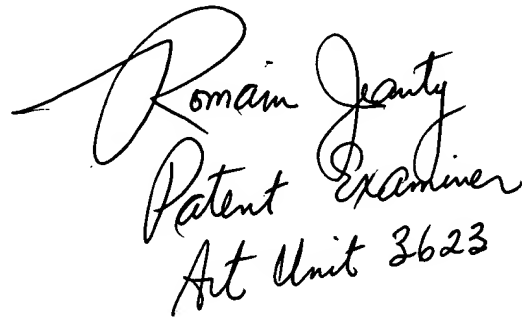 Romain Jeanty
Patent Examiner
Art Unit 3623